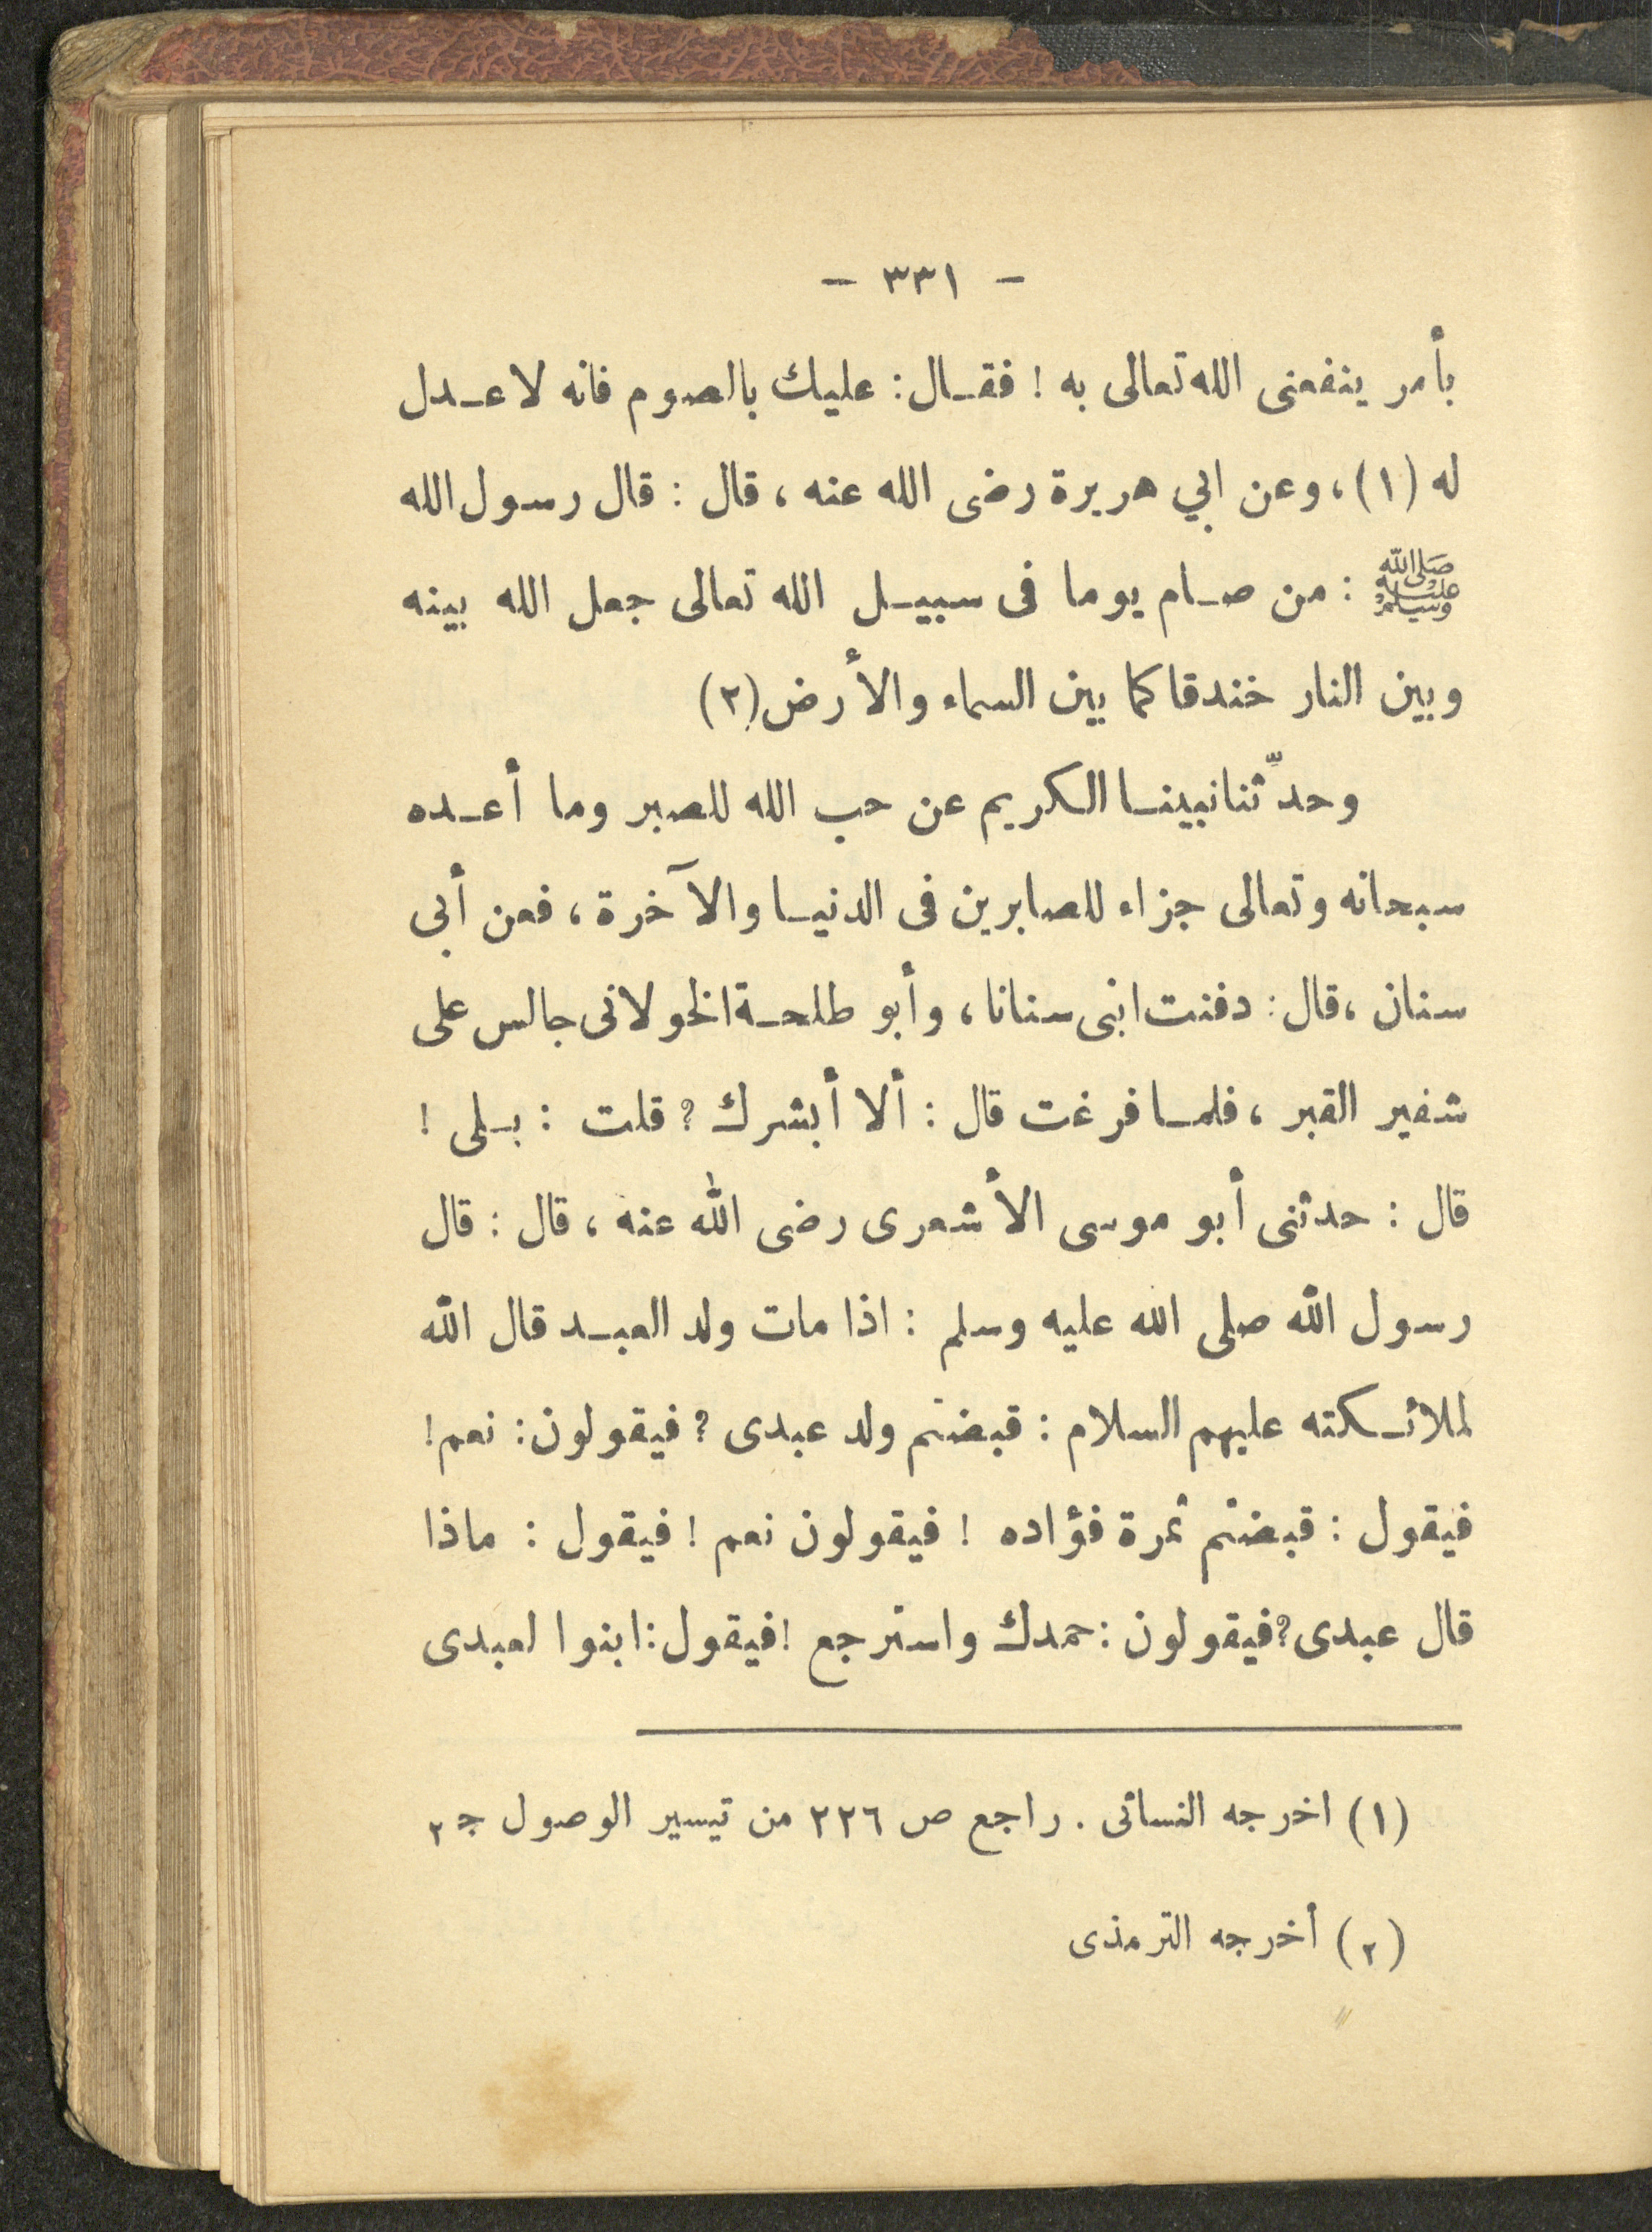 - ٣٣١ -
بأمر ينفعنى الله تعالى به ! فقال : عليك بالصوم فانه لا عدل
له (١) ، وعن ابي هريرة رضى الله عنه ، قال : قال رسول الله
ﷺ : من صام يوما فى سبيل الله تعالى جعل الله بينه
وبين النار خندقا كما بين السماء والأرض (٢)
وحدّثنا نبينا الكريم عن حب الله للصبر وما أعده
سبحانه وتعالى جزاء للصابرين فى الدنيا والآخرة ، فعن أبى
سنان ، قال : دفنت ابنى سنانا ، وأبو طلحة الخولانى جالس على
شفير القبر ، فلما فرغت قال : ألا أبشرك ؟ قلت : بلى !
قال : حدثنى أبو موسى الأشعرى رضى الله عنه ، قال : قال
رسول الله صلى الله عليه وسلم : اذا مات ولد العبد قال الله
لملائكته عليهم السلام : قبضتم ولد عبدى ؟ فيقولون : نعم !
فيقول : قبضتم ثمرة فؤاده ! فيقولون نعم ! فيقول : ماذا
قال عبدى ؟ فيقولون : حمدك واسترجع ! فيقول : ابنوا لعبدى
(١) اخرجه النسائى . راجع ص ٣٢٦ من تيسير الوصول ج ٢
(٢) أخرجه الترمذى